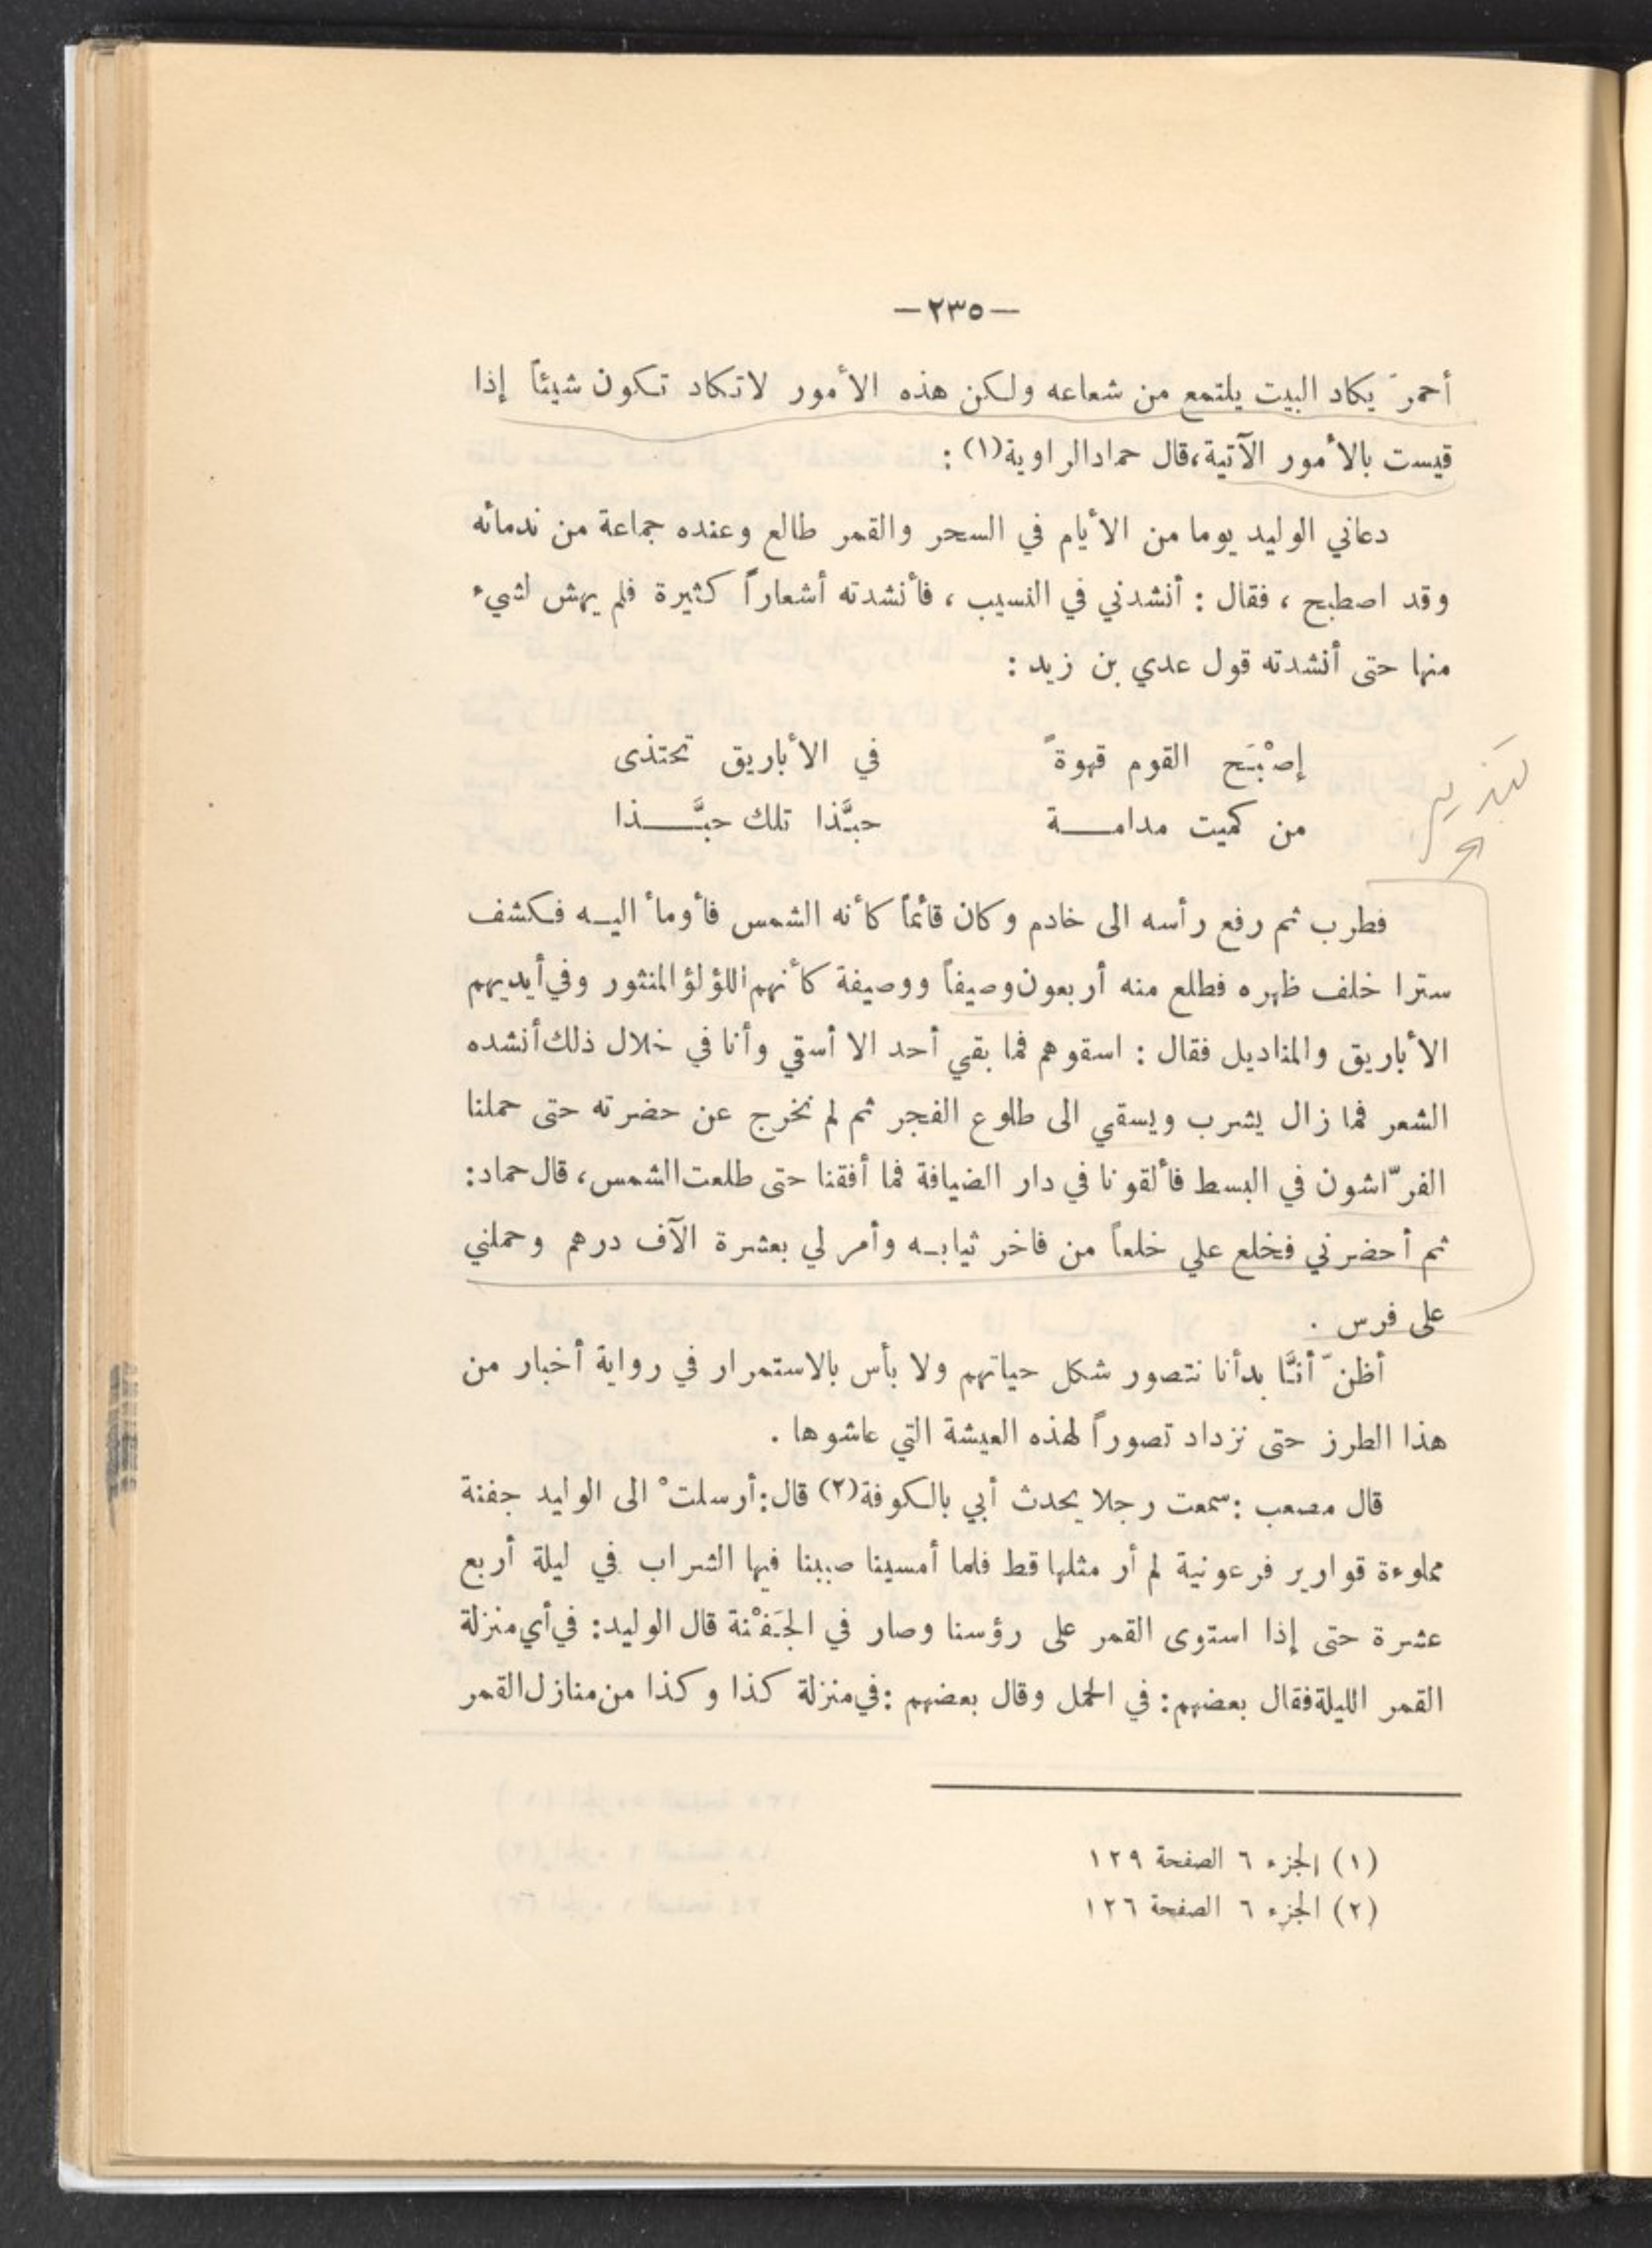 —٢٣٥—
أحمرَ يكاد البيت يلتمع من شعاعه ولكن هذه الأمور لاتكاد تكون شيئاً إذا
قيست بالأمور الآتية،قال حمادالراوية(١) :
دعاني الوليد يوما من الأيام في السحر والقمر طالع وعنده جماعة من ندمائه
وقد اصطبح ، فقال : أنشدني في النسيب ، فأنشدته أشعاراً كثيرة فلم يهش لشيء
منها حتى أنشدته قول عدي بن زيد :
إصْبَح القوم قهوةً في الأباريق تحتذى
من كميت مدامـــة حبَّذا تلك حبَّــــذا
تبذير
فطرب ثم رفع رأسه الى خادم وكان قائماً كأنه الشمس فأومأ اليـه فكشف
سترا خلف ظهره فطلع منه أربعون وصيفاً ووصيفة كأنهم اللؤلؤ المنثور وفي أيديهم
الأباريق والمناديل فقال : اسقوهم فما بقي أحد الا أسقي وأنا في خلال ذلك أنشده
الشعر فما زال يشرب ويسقي الى طلوع الفجر ثم لم نخرج عن حضرته حتى حملنا
الفرّاشون في البسط فألقونا في دار الضيافة فما أفقنا حتى طلعت الشمس، قال حماد:
ثم أحضرني فخلع علي خلعاً من فاخر ثيابـه وأمر لي بعشرة الآف درهم وحملني
على فرس .
أظنّ أنَّا بدأنا نتصور شكل حياتهم ولا بأس بالاستمرار في رواية أخبار من
هذا الطرز حتى نزداد تصوراً لهذه العيشة التي عاشوها .
قال مصعب :سمعت رجلا يحدث أبي بالكوفة(٢) قال:أرسلتْ الى الوليد جفنة
مملوءة قوارير فرعونية لم أر مثلها قط فلما أمسينا صببنا فيها الشراب في ليلة أربع
عشرة حتى إذا استوى القمر على رؤسنا وصار في الجَفْنة قال الوليد: في أي منزلة
القمر الليلة فقال بعضهم: في الحمل وقال بعضهم :في منزلة كذا وكذا من منازل القمر
(١) الجزء ٦ الصفحة ١٢٩
(٢) الجزء ٦ الصفحة ١٢٦